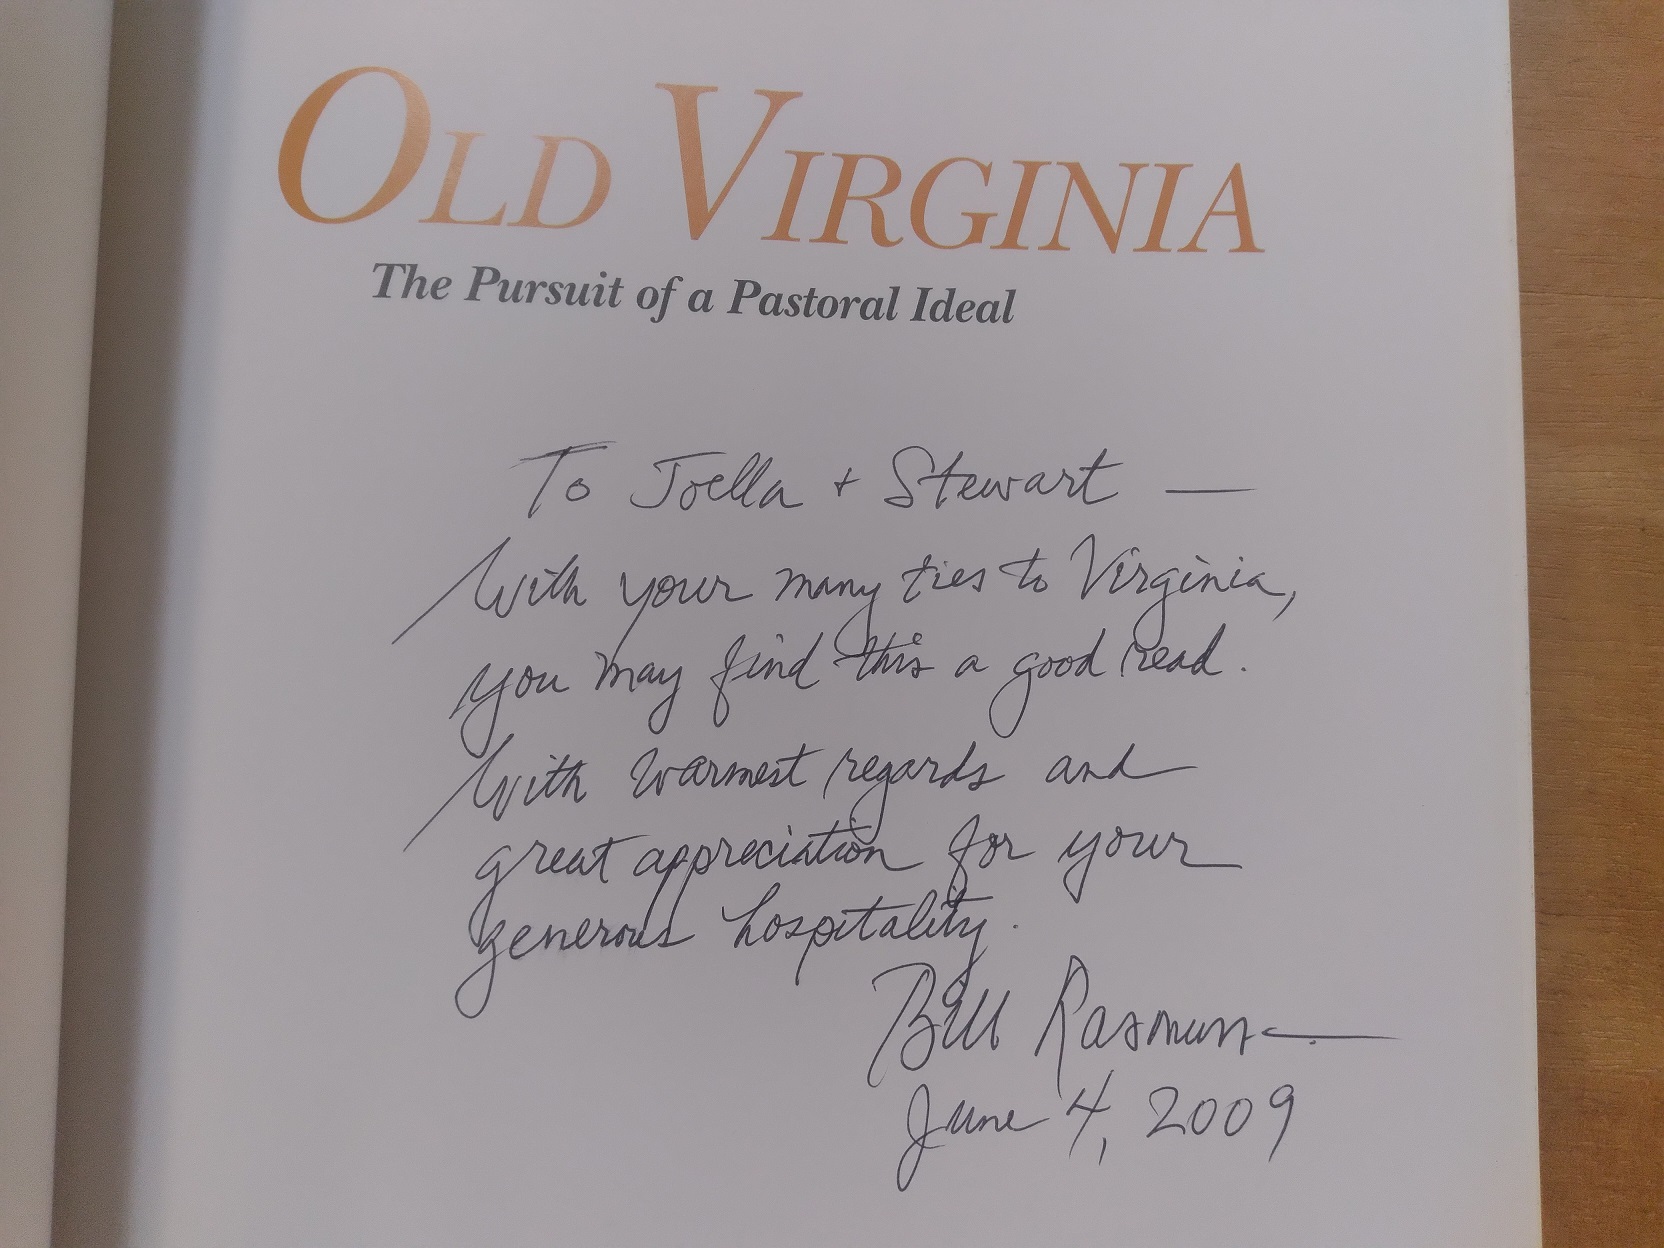 OLD VIRGINIA
The Pursuit of a Pastoral Ideal
To Joella + Stewart —
With your many ties to Virginia,
you may find this a good read.
With warmest regards and
great appreciation for your
generous hospitality.
Bill Rasmussen
June 4, 2009